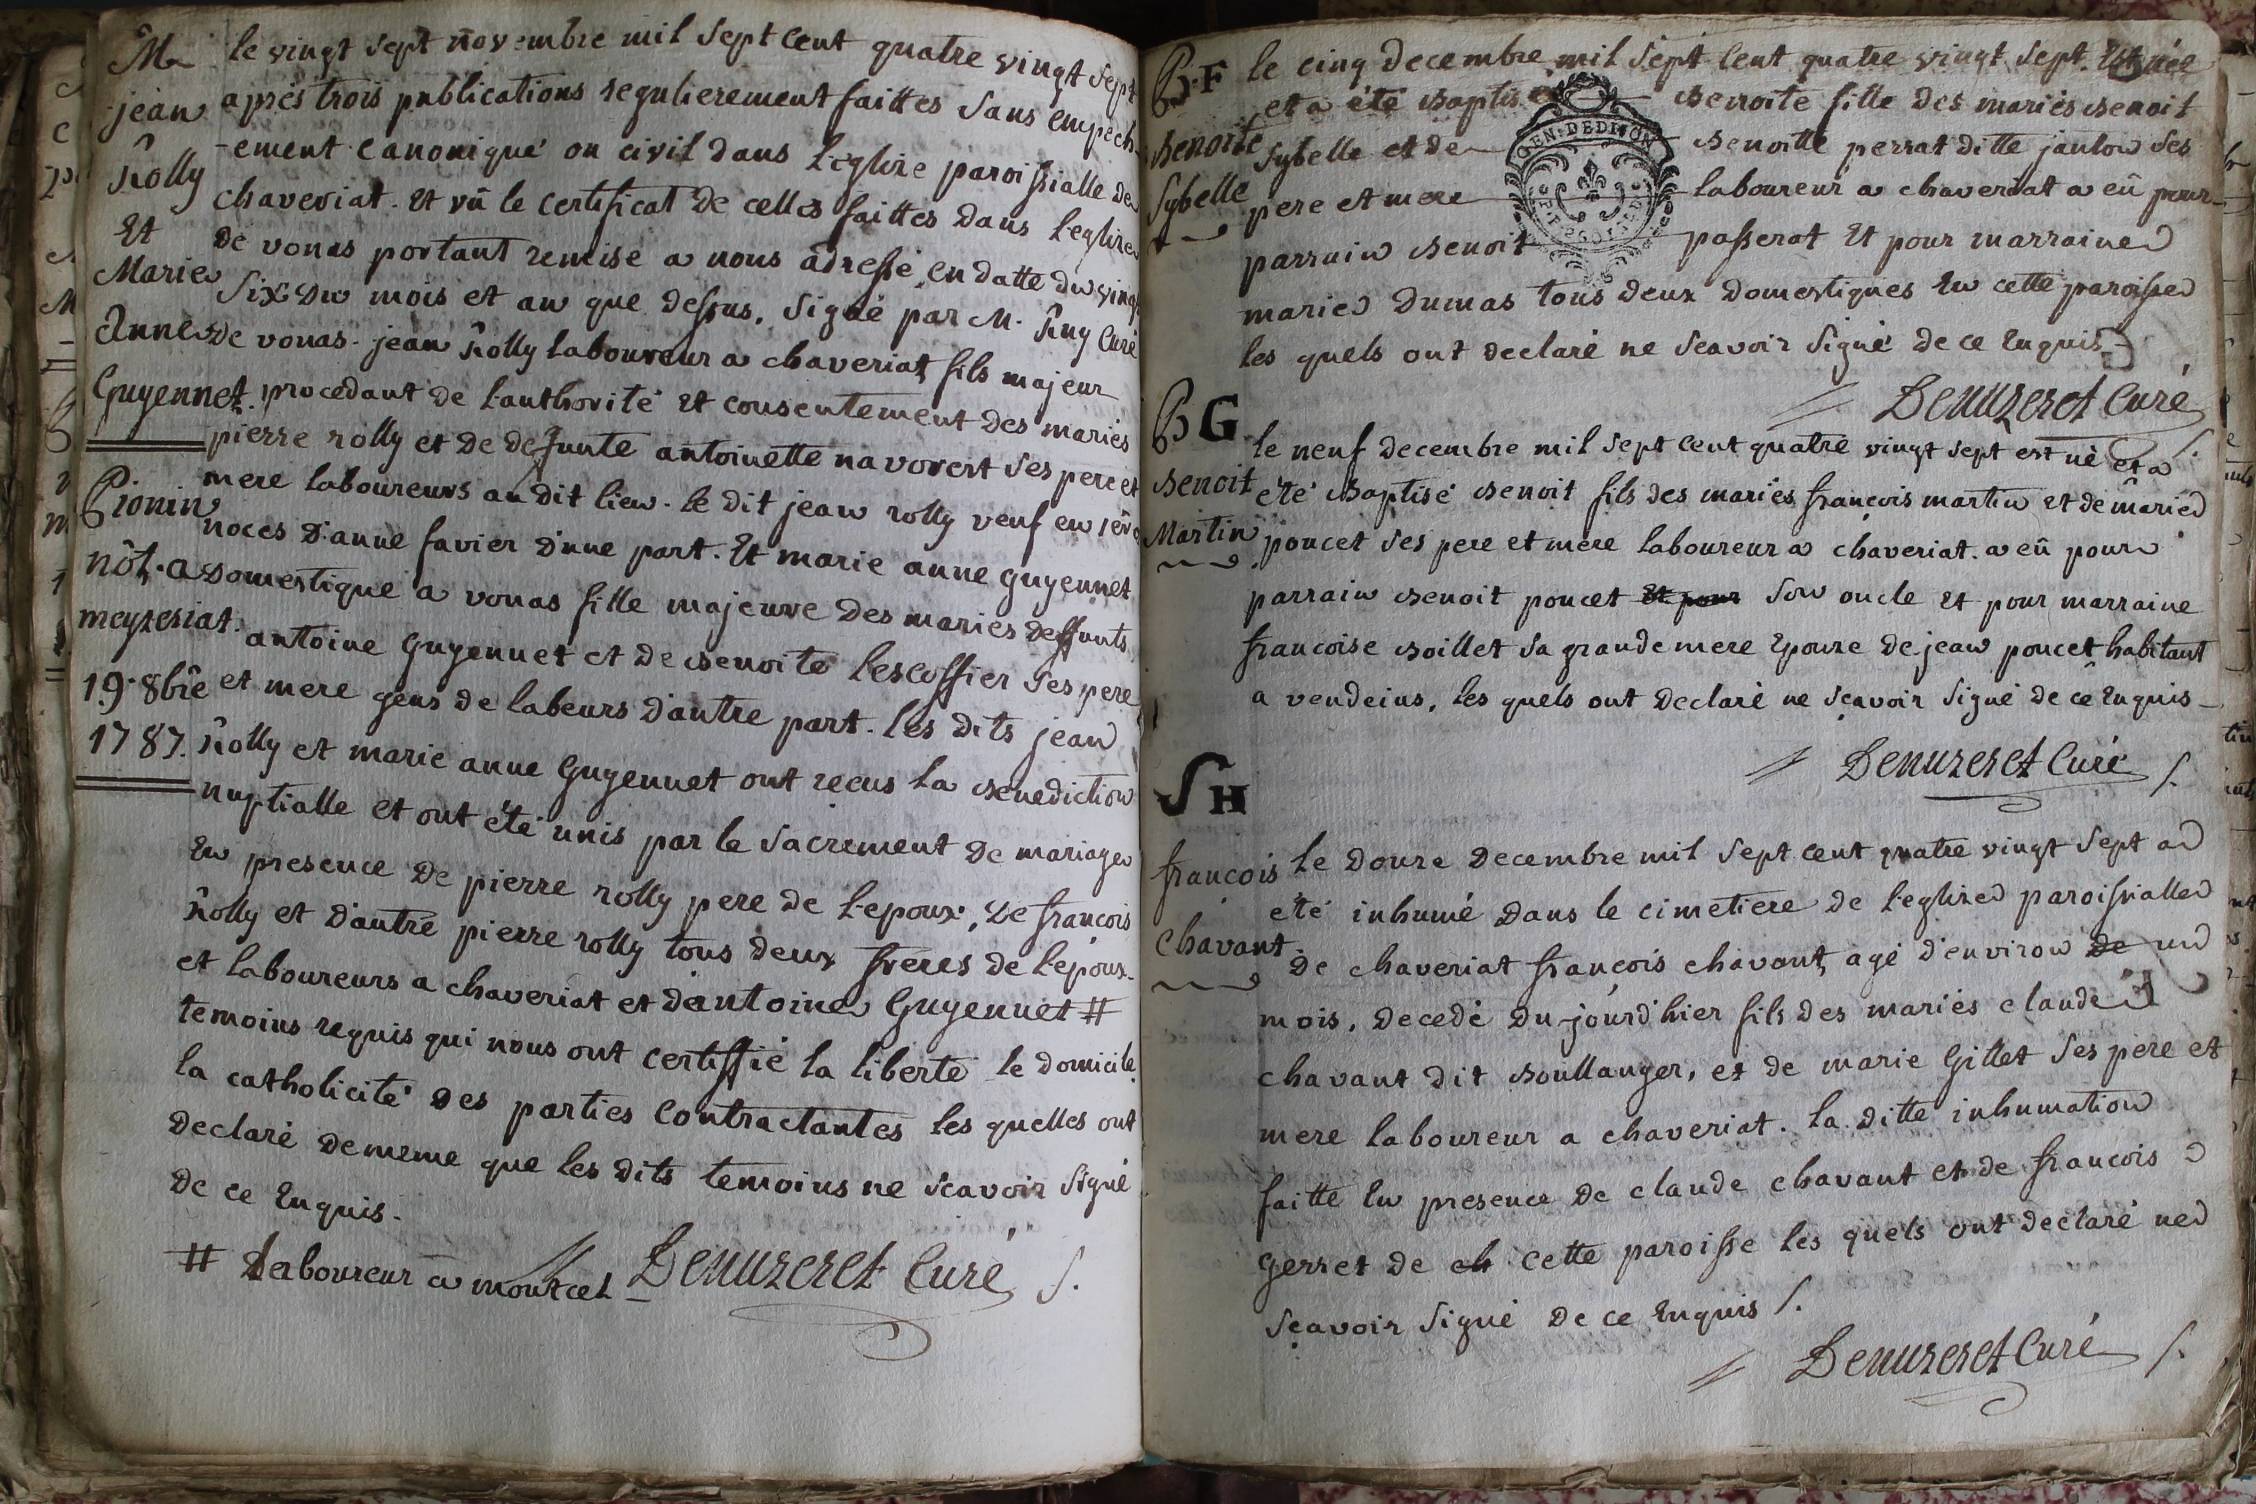 M
jean
Rolly
Et
Marie
Anne
Guyennet.
Pionin
nôt. a
meyzeriat.
19. 8bre
1787.
le vingt sept novembre mil sept cent quatre vingt sept
après trois publications regulierement faittes sans empech-
-ement canonique ou civil dans l'eglise paroissialle de
chaveriat. Et vû le certificat de celles faittes dans l'eglise
de vonas portant remise a nous adressé en datte du vingt
six du mois et an que dessus, signé par M. Ruy Curé
de vonas. jean Rolly laboureur a chaveriat fils majeur
procedant de l'authorité et consentement des mariés
pierre rolly et de defunte antoinette navoret ses pere et
mere laboureurs au dit lieu. le dit jean rolly veuf en 1ere
noces d'anne favier d'une part. Et marie anne guyennet
domestique a vonas fille majeure des mariés deffunts
antoine guyennet et de benoite Lescoffier ses pere
et mere gens de labeurs d'autre part. les dits jean
Rolly et marie anne Guyennet ont recus la benediction
nuptialle et ont été unis par le sacrement de mariage
En presence de pierre rolly pere de l'epoux, de françois
Rolly et d'autre pierre rolly tous deux freres de l'epoux.
et laboureurs a chaveriat et d'antoine Guyennet #
temoins requis qui nous ont certiffié la liberté le domicile
la catholicité des parties contractantes les quelles ont
declaré de meme que les dits temoins ne scavoir signé
de ce Enquis.
# Laboureur a montcet Denuzeret Curé
B. F
Benoite
Sybelle
le cinq decembre mil sept cent quatre vingt sept Est née
et a été baptisée benoite fille des mariés benoit
Sybelle et de benoitte perrat ditte janlon ses
pere et mere laboureur a chaveriat a eû pour
parrain benoit passerat Et pour marraine
marie Dumas tous deux domestiques En cette paroisse
les quels ont declaré ne scavoir signé de ce Enquis
GEN. DE DIJON
Denuzeret Curé
B G
Benoit
Martin
le neuf decembre mil sept cent quatre vingt sept est né et a
été baptisé benoit fils des mariés françois martin et de marie
poncet ses pere et mere laboureur a chaveriat. a eû pour
parrain benoit poncet Et pour son oncle Et pour marraine
francoise boillet sa grande mere Epouze de jean poncet habitant
a vendeins, les quels ont declaré ne sçavoir signé de ce Enquis
Denuzeret Curé
S H
françois
Chavant
le douze decembre mil sept cent quatre vingt sept a
eté inhumé dans le cimetiere de l'eglise paroissialle
de chaveriat françois chavant, agé d'environ de un
mois, decedé du jourd'hier fils des mariés claude
chavant dit boullanger, et de marie Gillet ses pere et
mere laboureur a chaveriat. la ditte inhumation
faitte En presence de claude chavant et de francois
gerret de ch cette paroisse les quels ont declaré ne
sçavoir signé de ce Enquis
Denuzeret Curé